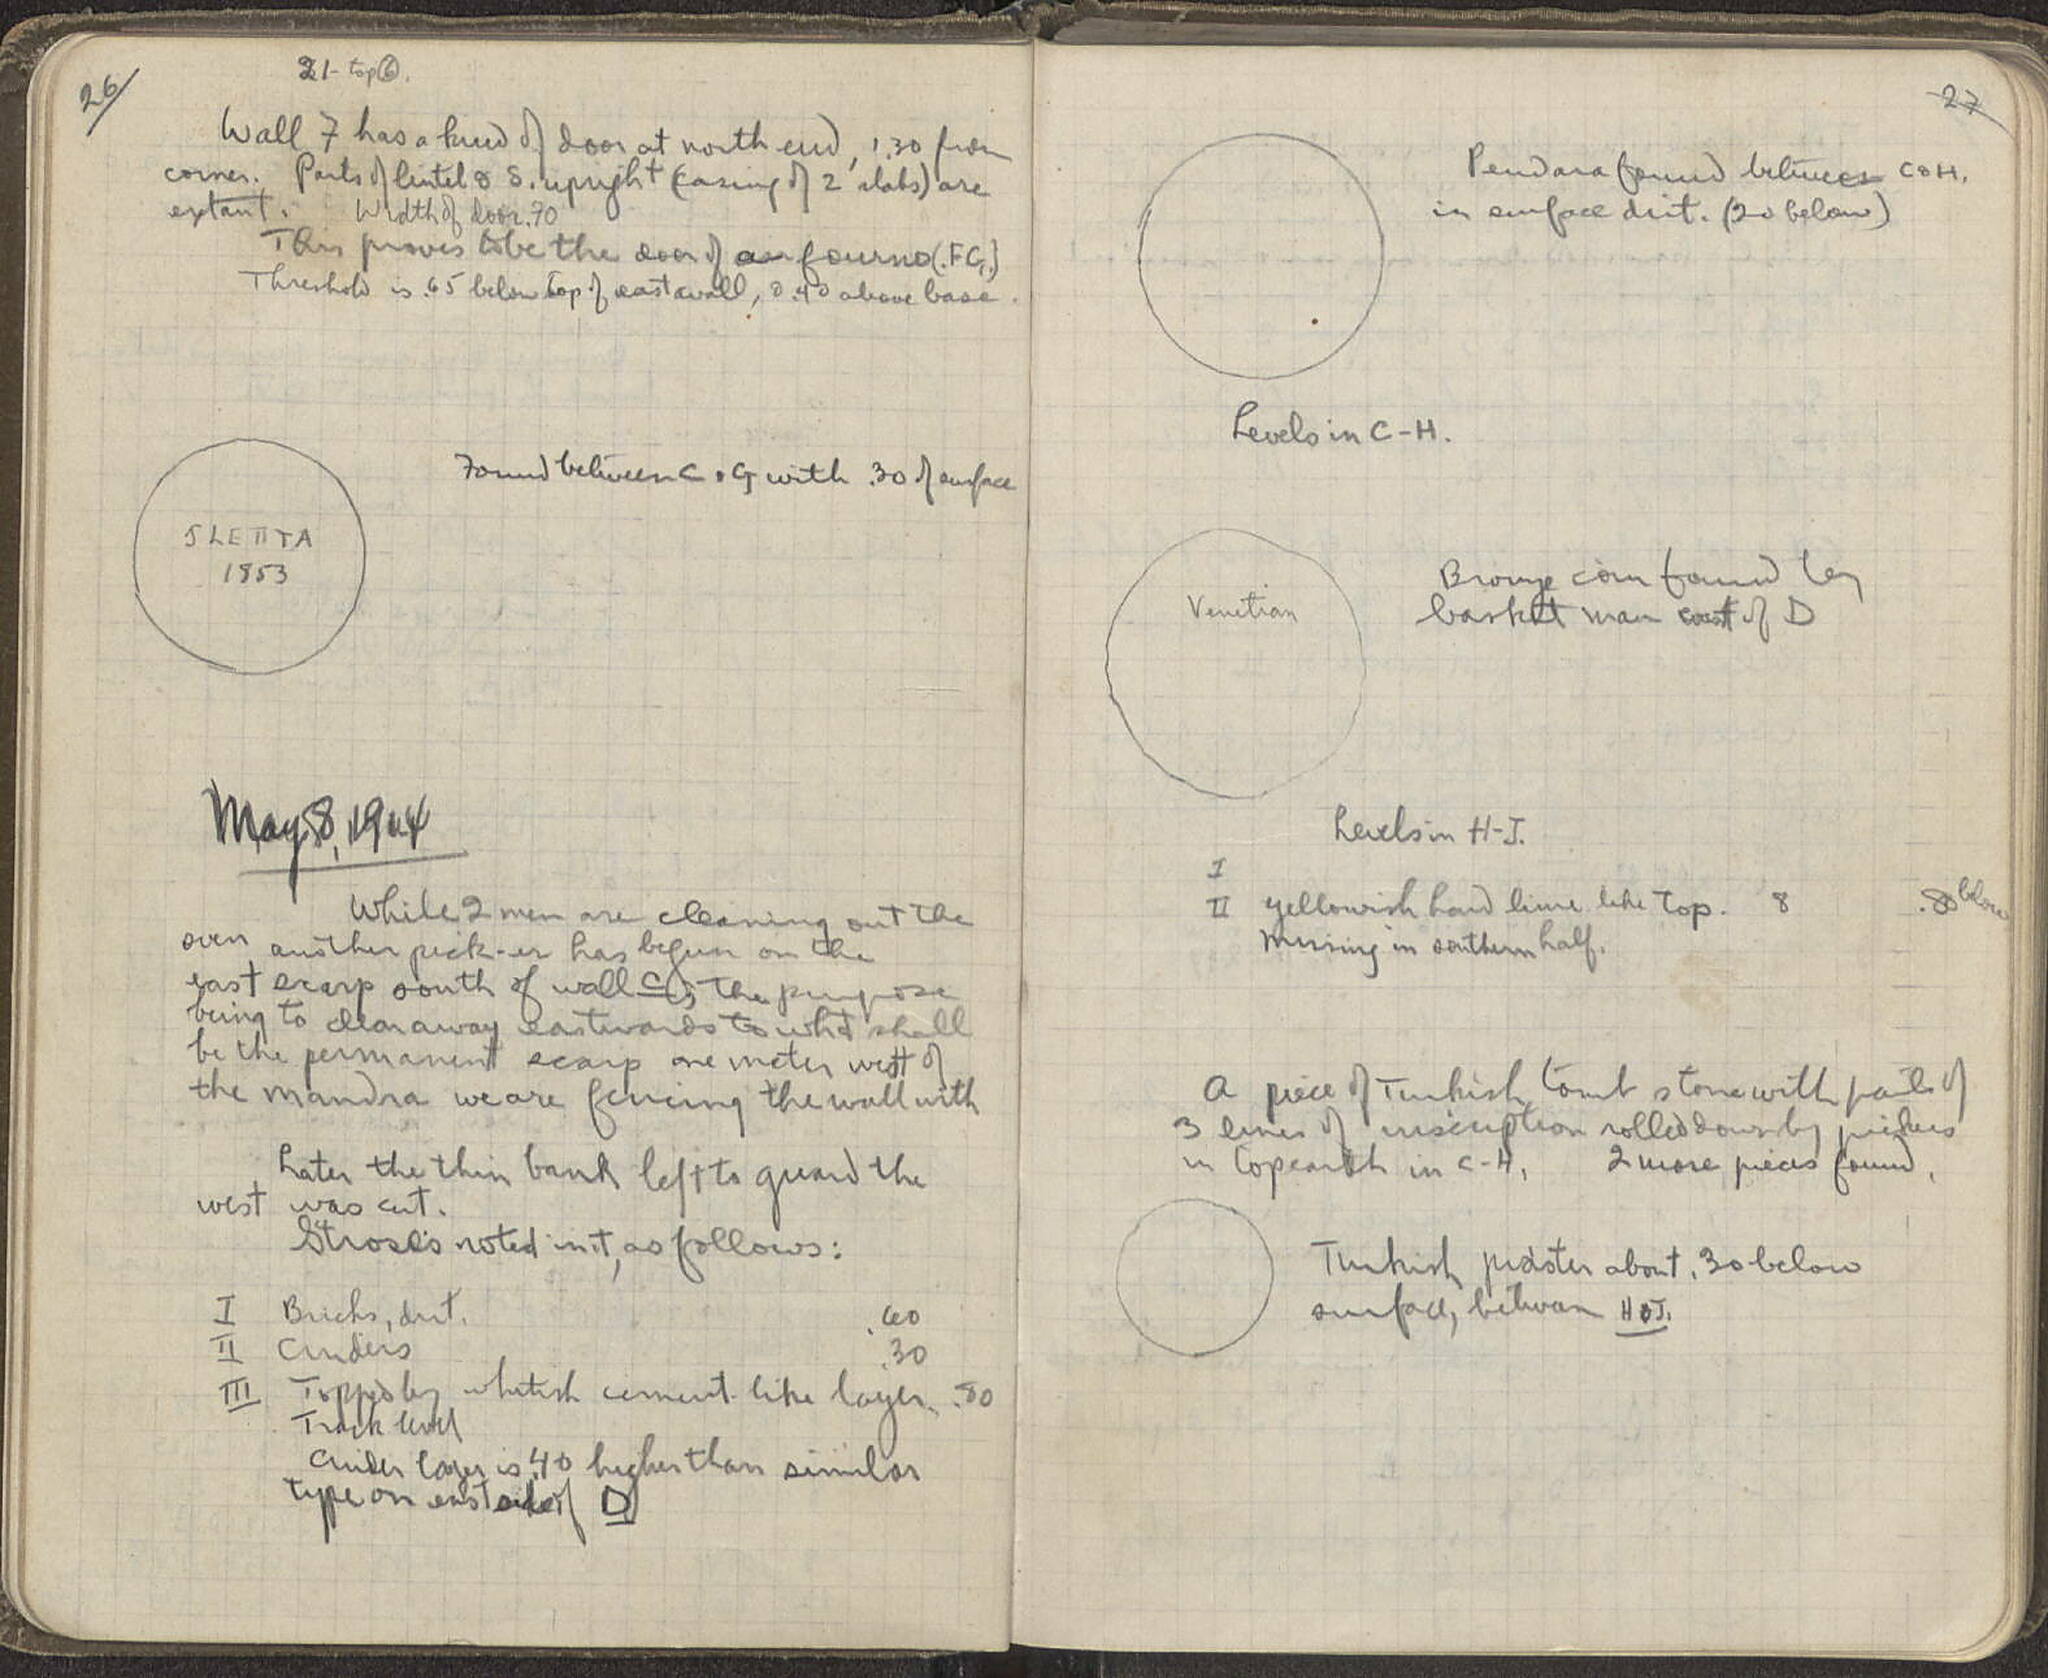 26
21 - top 6.
Wall 7 has a kind of door at north end, 1.30 from
corner. Parts of lintel & S. upright (casing of 2 slabs) are
extant. Width of door .70
This proves to be the door of a fourno (.FG.)
Threshold is .65 below top of east wall, & .40 above base.
Found between C & G with .30 of surface
5 ΛΕΠΤΑ
1853
May 8, 1904
While 2 men are cleaning out the
oven another pick-er has begun on the
east scarp south of wall C; the purpose
being to clear away eastwards to what shall
be the permanent scarp one meter west of
the mandra we are fencing the wall with
Later the thin bank left to guard the
west was cut.
Stroses noted in it, as follows:
I Bricks, dirt. .60
II Cinders .30
III Topped by whitish cement-like layer. .80
Track level
Cinder layer is .40 higher than similar
type on east side of D
27
Pendara found between C & H.
in surface dirt. (20 below)
Levels in C-H.
Venetian
Bronze coin found by
basket man east of D
Levels in H-J.
I
II Yellowish hard lime like top. 8 .80 below
Missing in southern half.
A piece of Turkish tomb stone with parts of
3 lines of inscription rolled down by pickers
in top earth in C-H. 2 more pieces found.
Turkish piaster about .30 below
surface, between H & J.